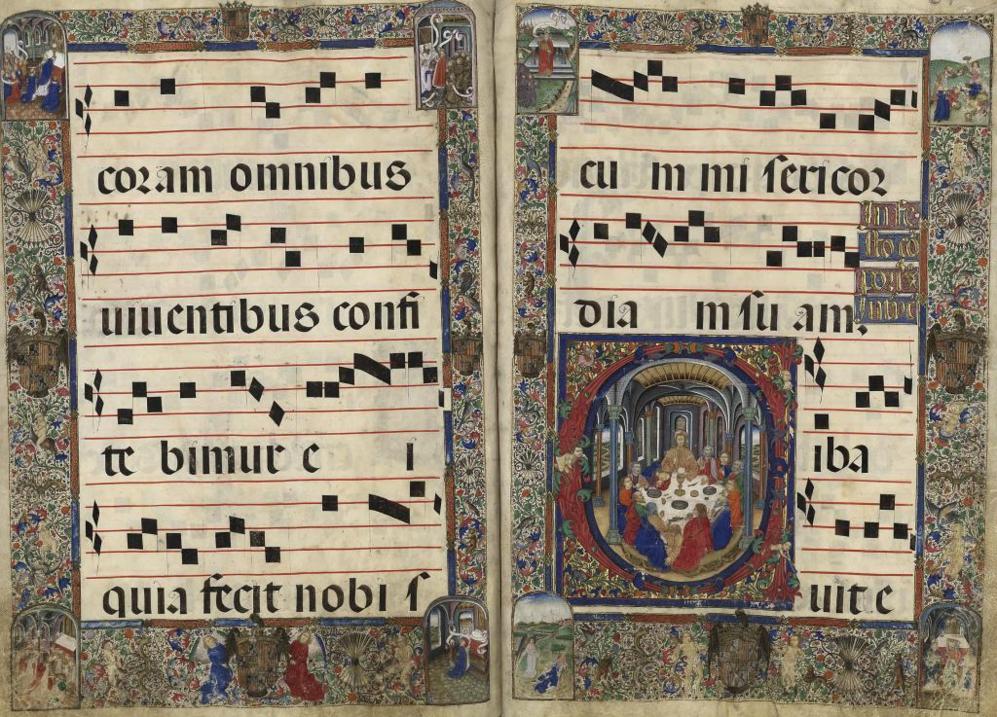 coram omnibus
uiuentibus confi
te bimur e i
quia fecit nobi s
cu m mi sericor
dia m su am.
In fe
sto co
poris
Ciba
uit e